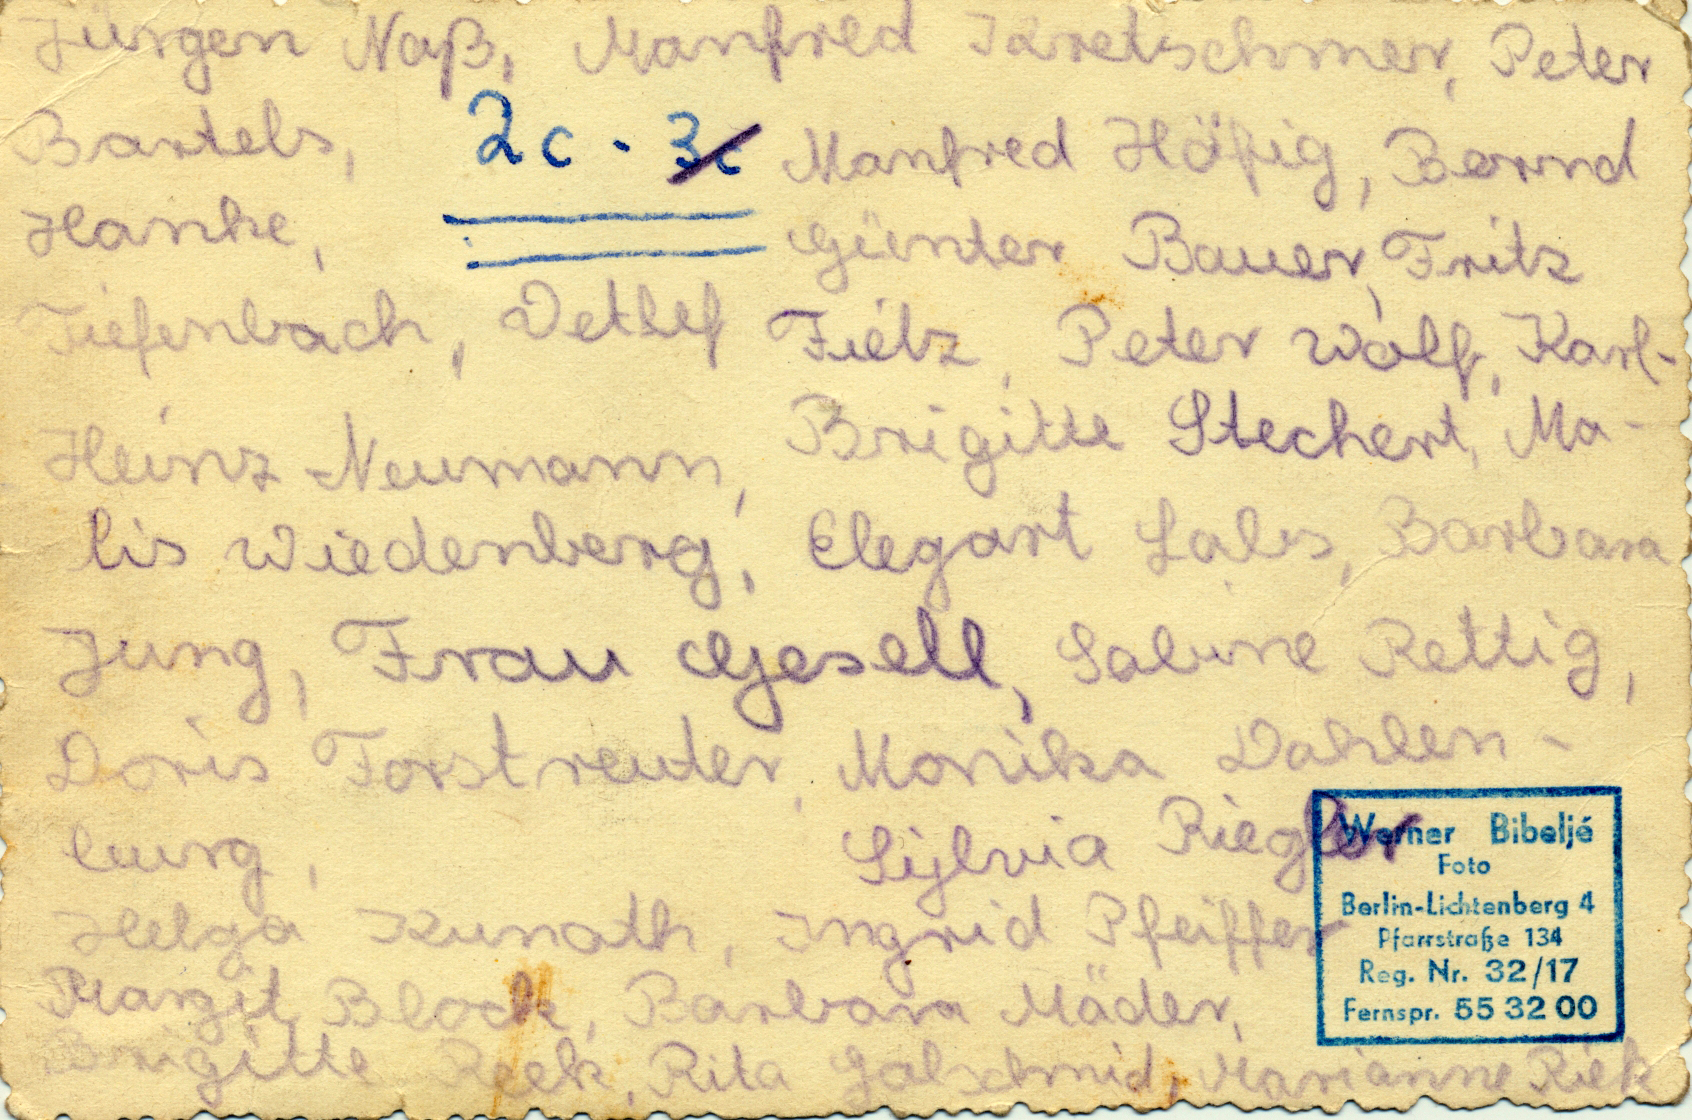 Jürgen Naß, Manfred Kretschmer, Peter
Bartels, 2c · 3c Manfred Häfig, Bernd
Hanke, Günter Bauer, Fritz
Tiefenbach, Detlef Fietz, Peter Wolf, Karl-
Heinz Neumann, Brigitte Stechert, Ma-
lis Wiedenberg, Elegart Sales, Barbara
Jung, Frau Gesell, Sabine Rettig,
Doris Forstreuter, Monika Dahlen-
burg, Sylvia Riegler
Helga Kunath, Ingrid Pfeiffer
Margit Block, Barbara Mäder,
Brigitte Reek, Rita Marianne Riek
Werner Bibeljé
Foto
Berlin-Lichtenberg 4
Pfarrstraße 134
Reg. Nr. 32/17
Fernspr. 55 32 00